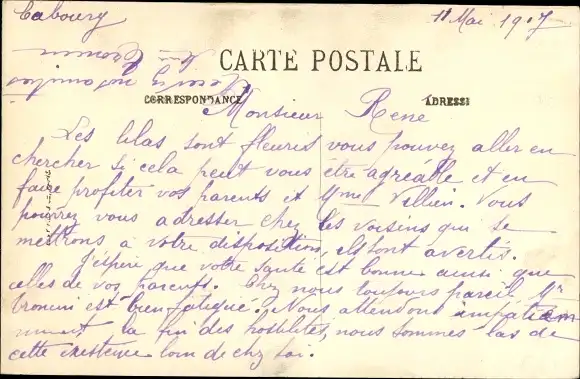 Cabourg
11 Mai 1917
CARTE POSTALE
CORRESPONDANCE
ADRESSE
Monsieur René
Les lilas sont fleuris vous pouvez aller en
chercher si cela peut vous être agréable et en
faire profiter vos parents et Mme Villien. Vous
pourrez vous adresser chez les voisins qui se
mettrons à votre disposition, ils sont avertis.
J'espère que votre santé est bonne ainsi que
celles de vos parents. Chez nous toujours pareil Mr
est bien fatigué. Nous attendons impatiem
ment la fin des hostilités, nous sommes las de
cette existence loin de chez soi.